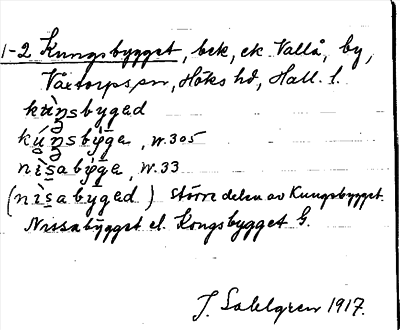 1-2 Kungsbygget, bek, ek Vallå, by,
Våxtorps sn, Höks hd, Hall. l.
kùŋsbyged
kúŋsby̆ga, W.305
nìsabýga, W.33
(nìsabyged) Större delen av Kungsbygget.
Nissabygget el. Kongsbygget G.
J. Sahlgren 1917.